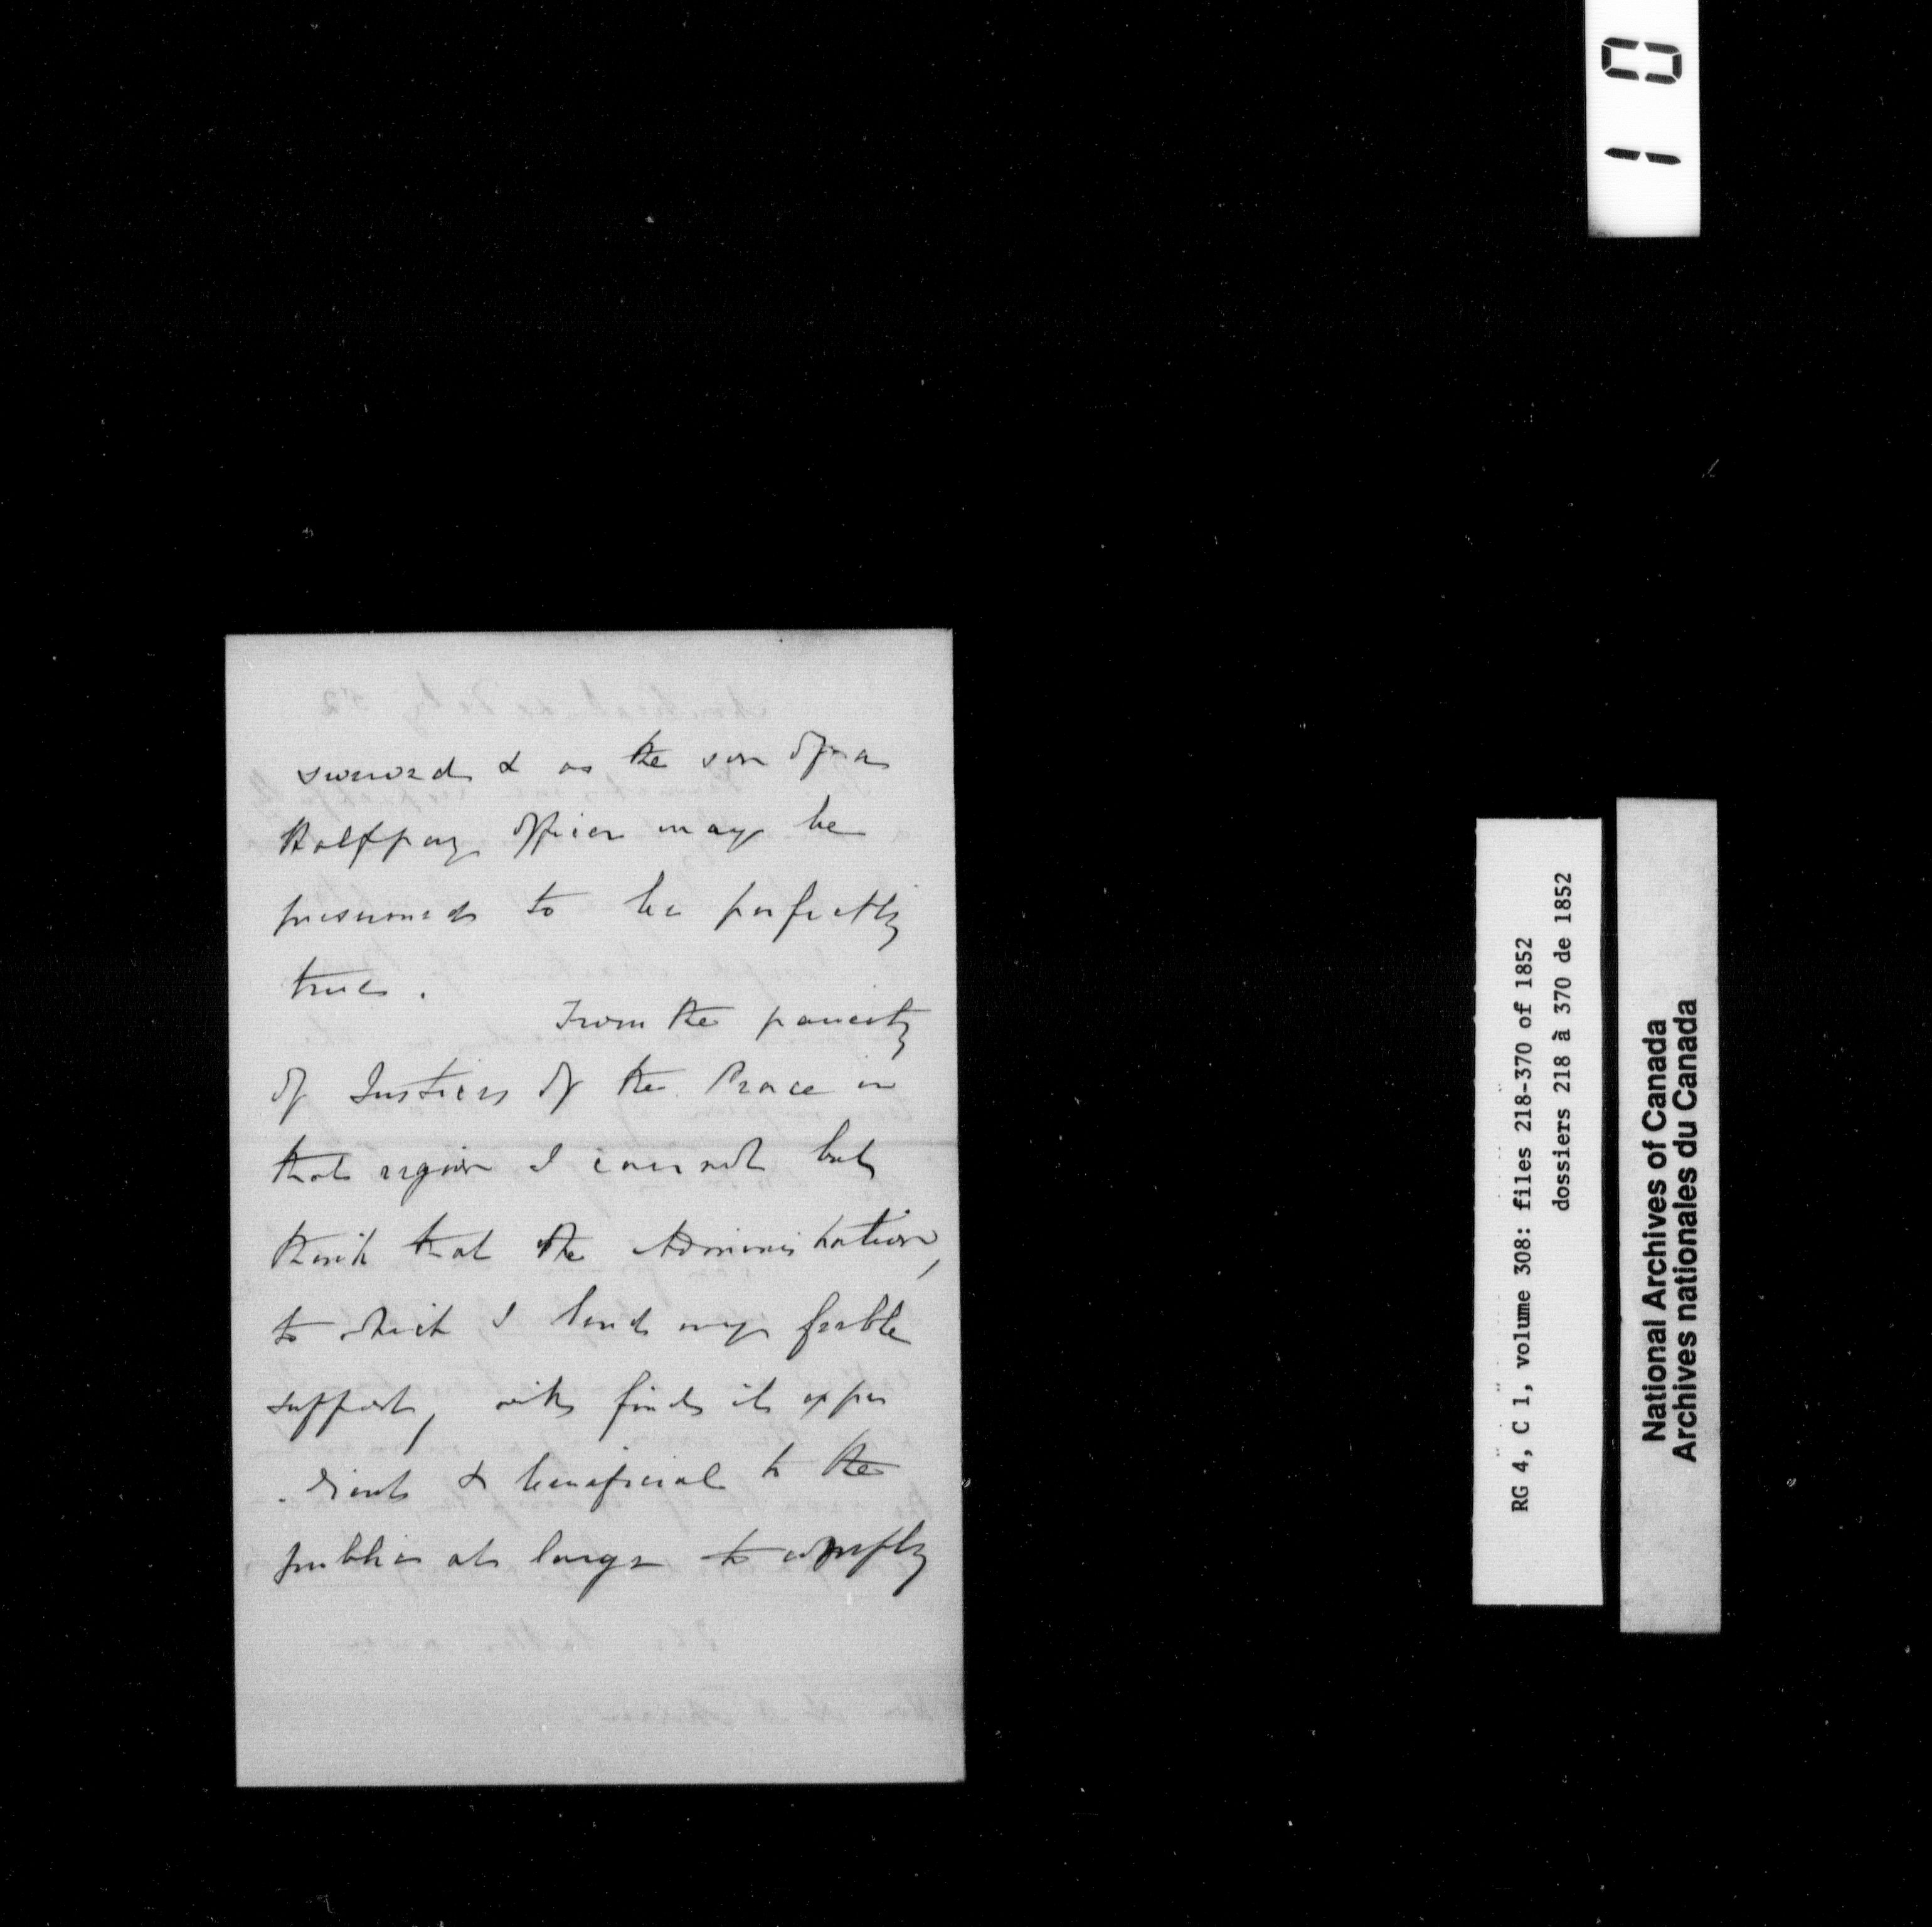 10
& as the son of a
Halfpay officer may be
presumed to be perfectly
true.
From the paucity
of Justices of the Peace in
that region I cannot but
think that the Administration,
to which I lend my feeble
support, will find it expe
-dient & beneficial to the
public at large to comply
RG 4, C 1, volume 308: files 218-370 of 1852
dossiers 218 à 370 de 1852
National Archives of Canada
Archives nationales du Canada